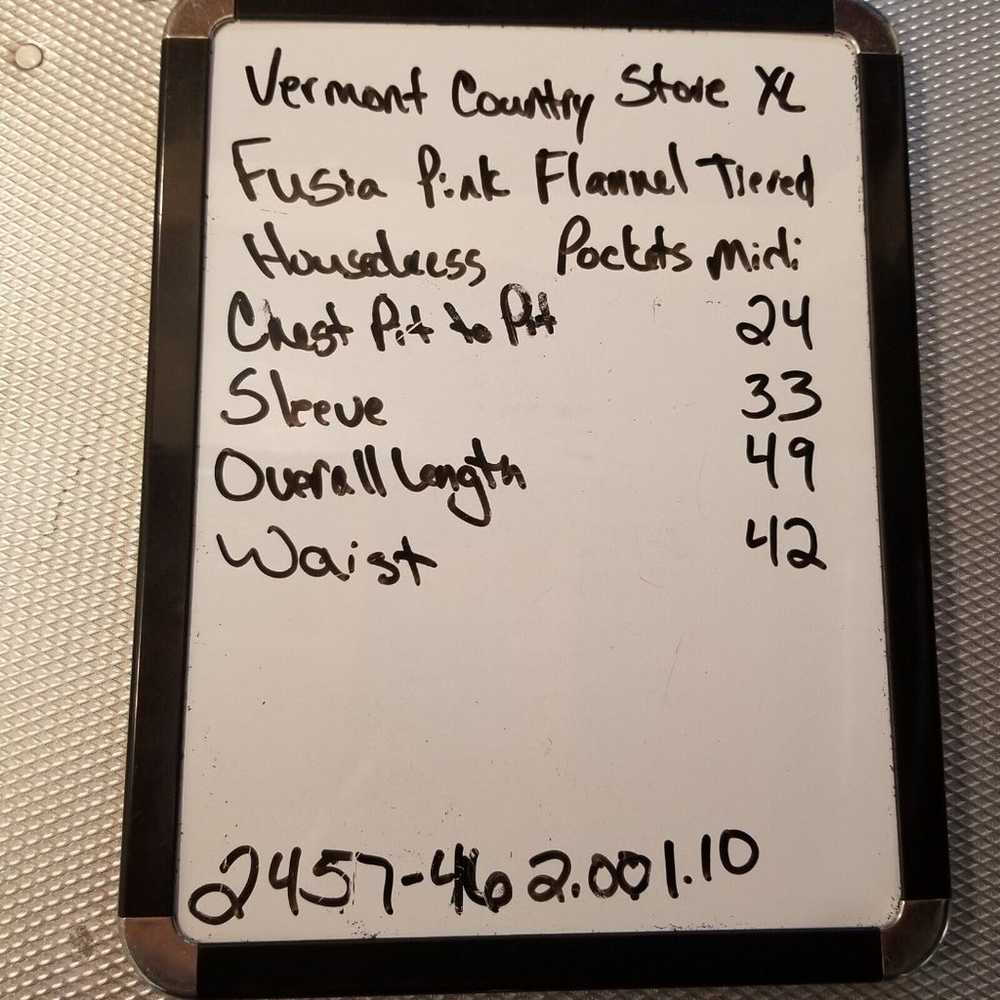 Vermont Country Store XL
Fusia Pink Flannel Tiered
Housedress Pockets Midi
Chest Pit to Pit 24
Sleeve 33
Overall Length 49
Waist 42
2457-462.001.10